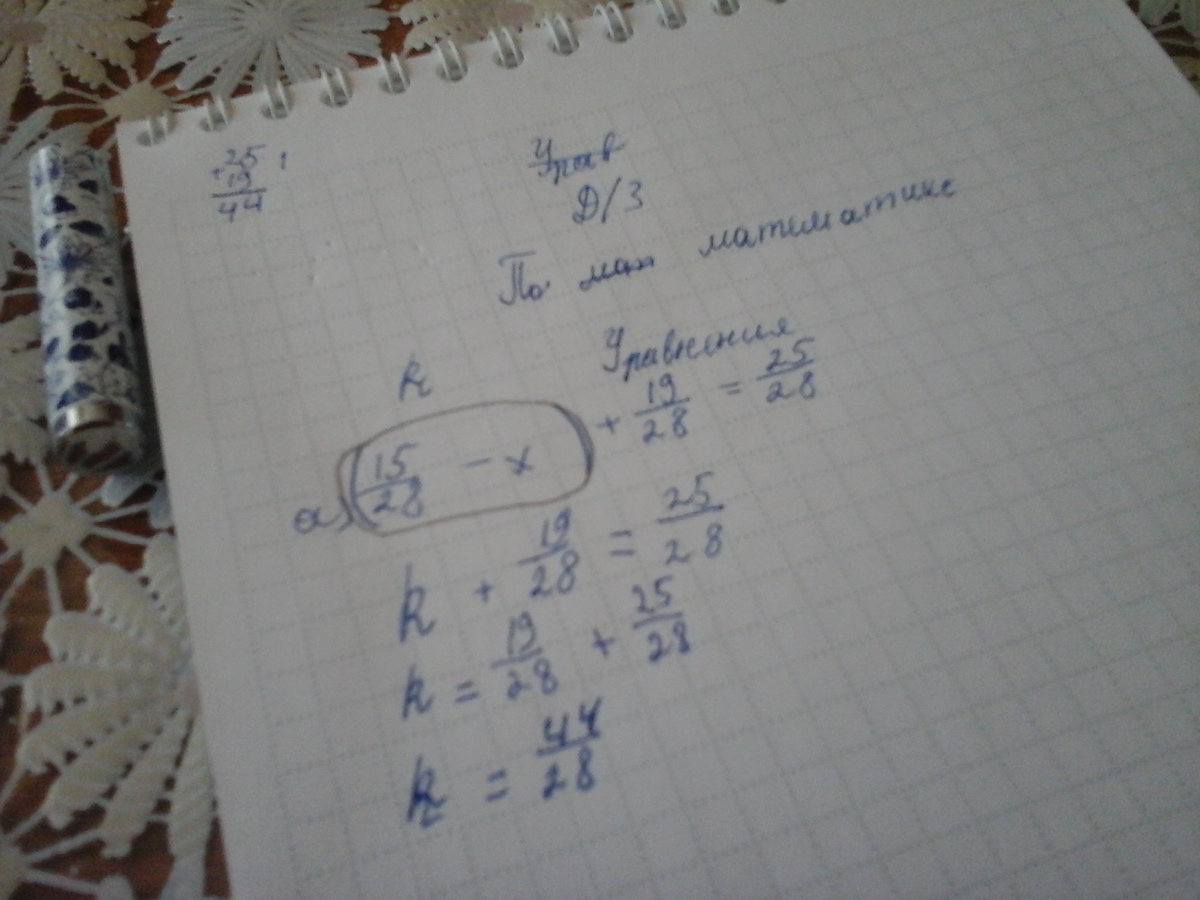 +25 1
19
44
Урав
Д/З
По мат математике
Уравнения
k
а) (15/28 - x) + 19/28 = 25/28
k + 19/28 = 25/28
k = 19/28 + 25/28
k = 44/28